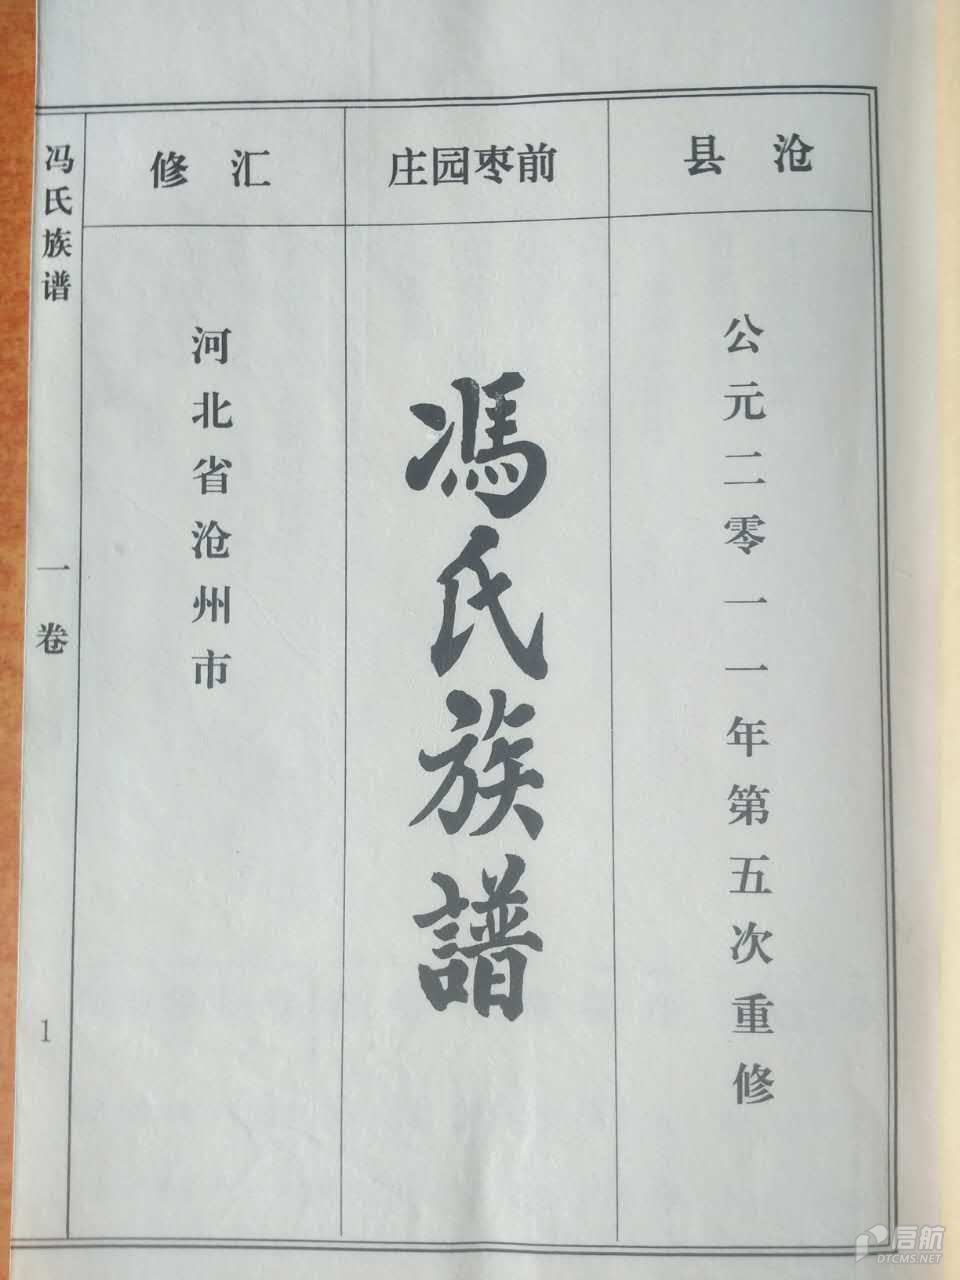 沧县
前枣园庄
汇修
公元二零一一年第五次重修
馮氏族譜
河北省沧州市
冯氏族谱
一卷
1
启航
DTCMS.NET